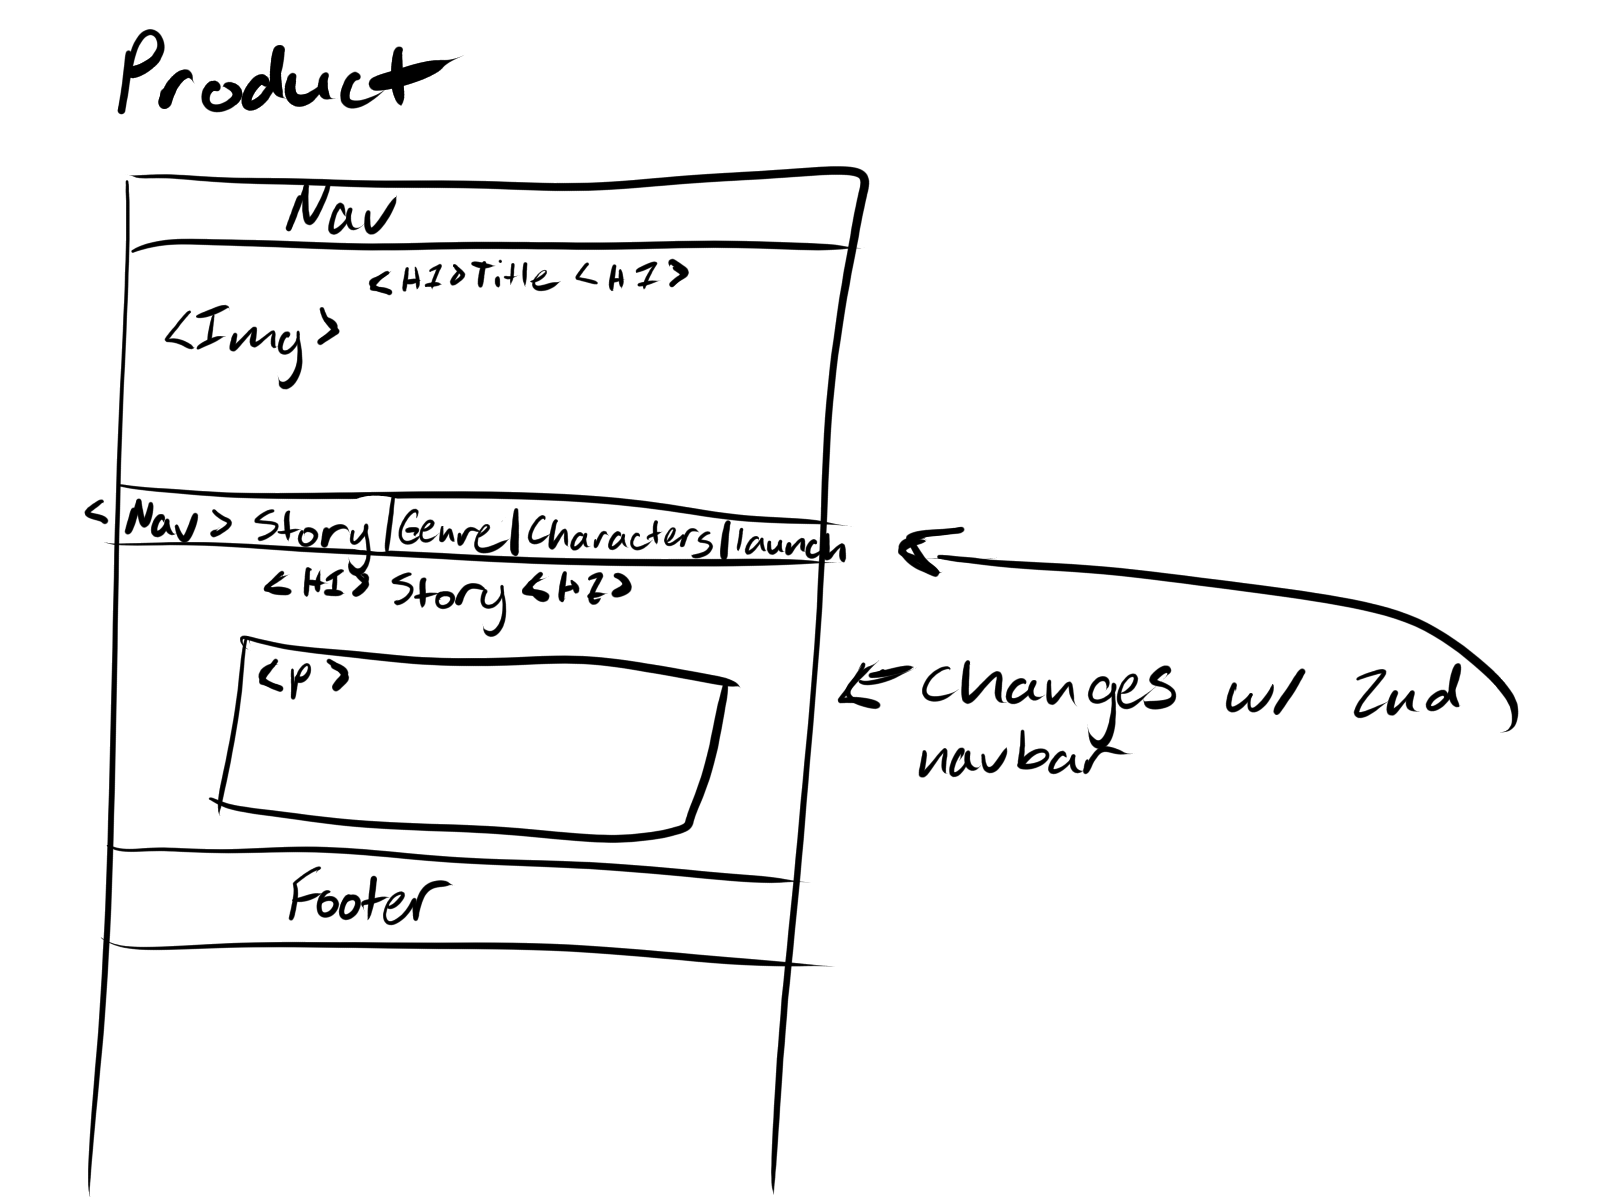 Product
Nav
<H1>Title <H1>
<Img>
<Nav> Story|Genre|Characters|launch
<H1> Story <H2>
<p>
changes w/ 2nd
navbar
Footer